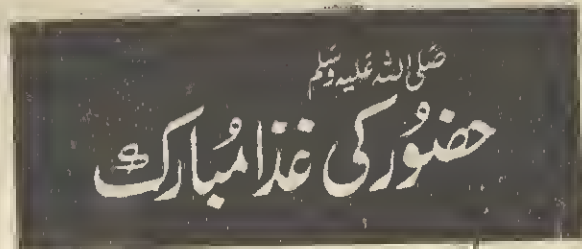 صلی اللہ علیہ وسلم
حضور کی غذا مبارک